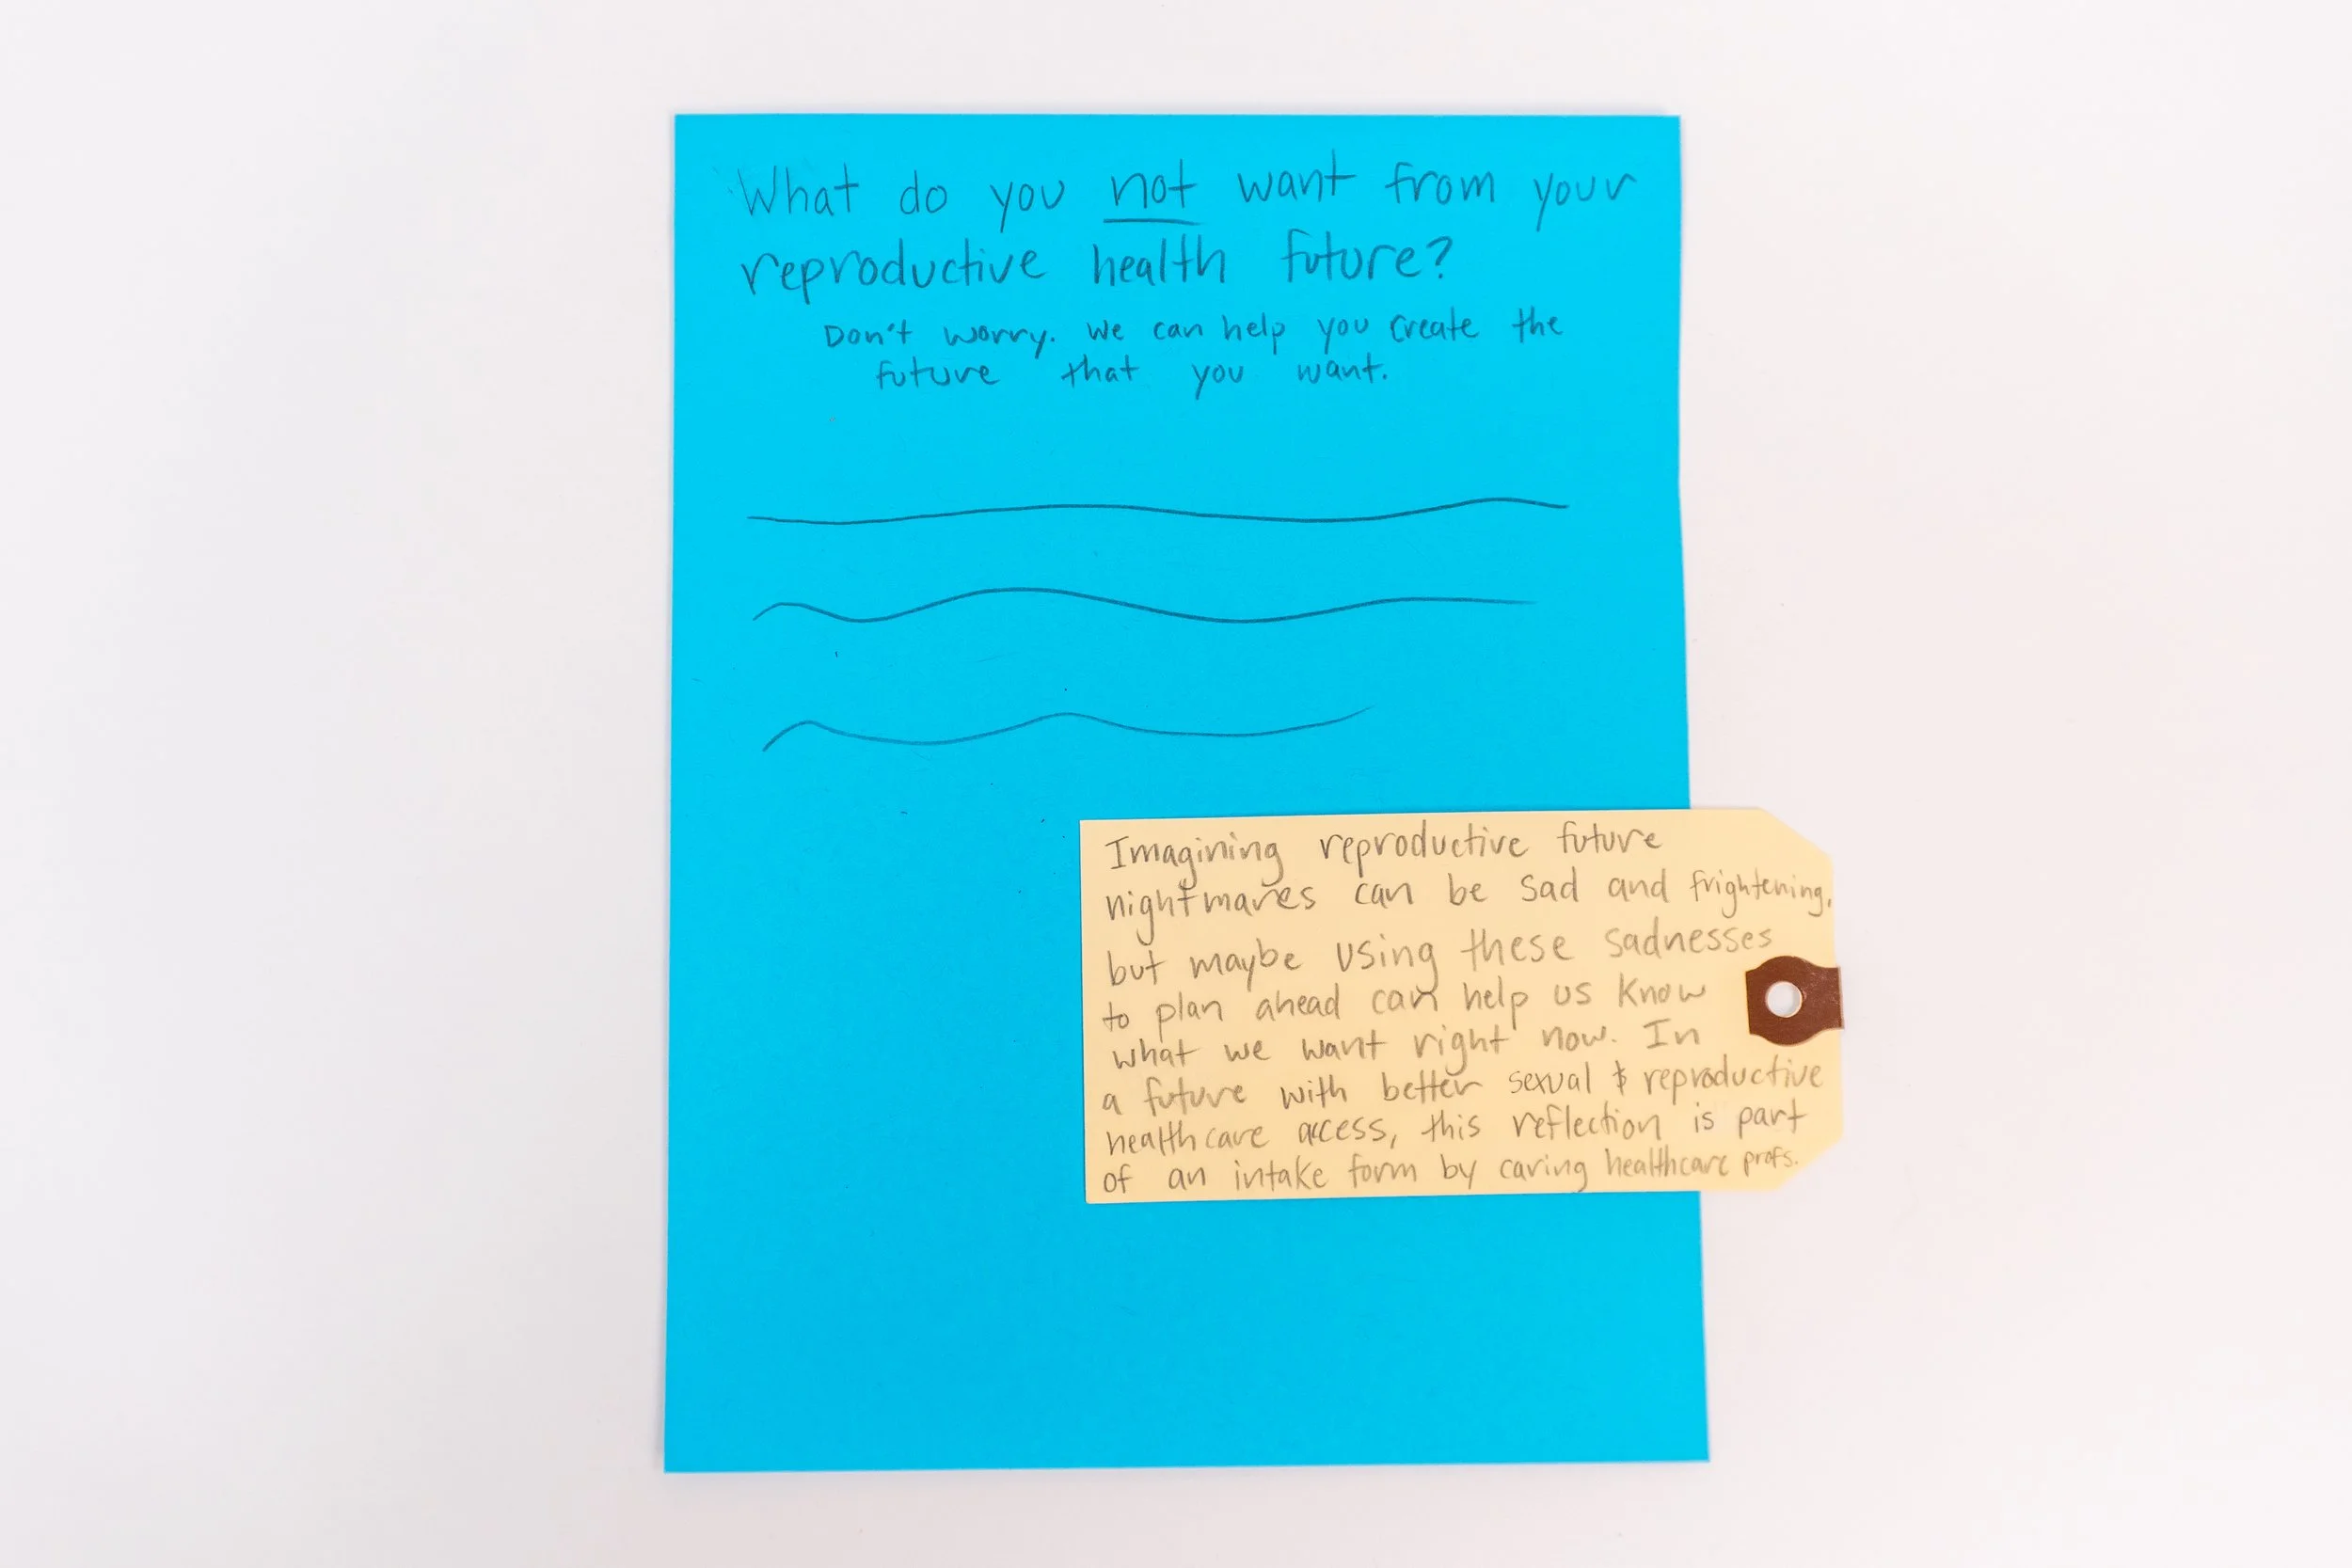 What do you not want from your
reproductive health future?
Don't worry. We can help you create the
future that you want.
Imagining reproductive future
nightmares can be sad and frightening,
but maybe using these sadnesses
to plan ahead can help us know
what we want right now. In
a future with better sexual & reproductive
healthcare access, this reflection is part
of an intake form by caring healthcare profs.